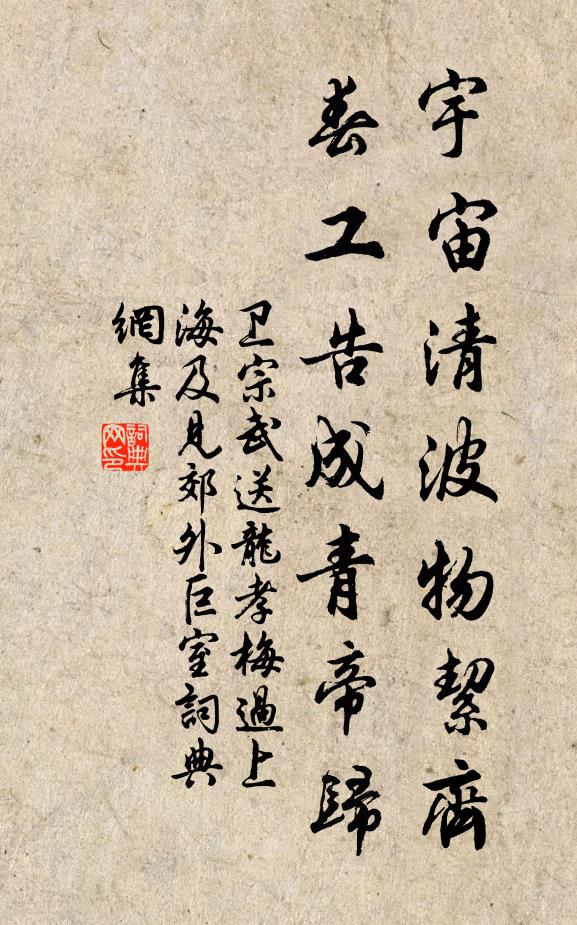 宇宙清波物絜齊
春工告成青帝歸
卫宗武送龍孝梅過上
海及見郊外巨室詞典
網集
詞典網印